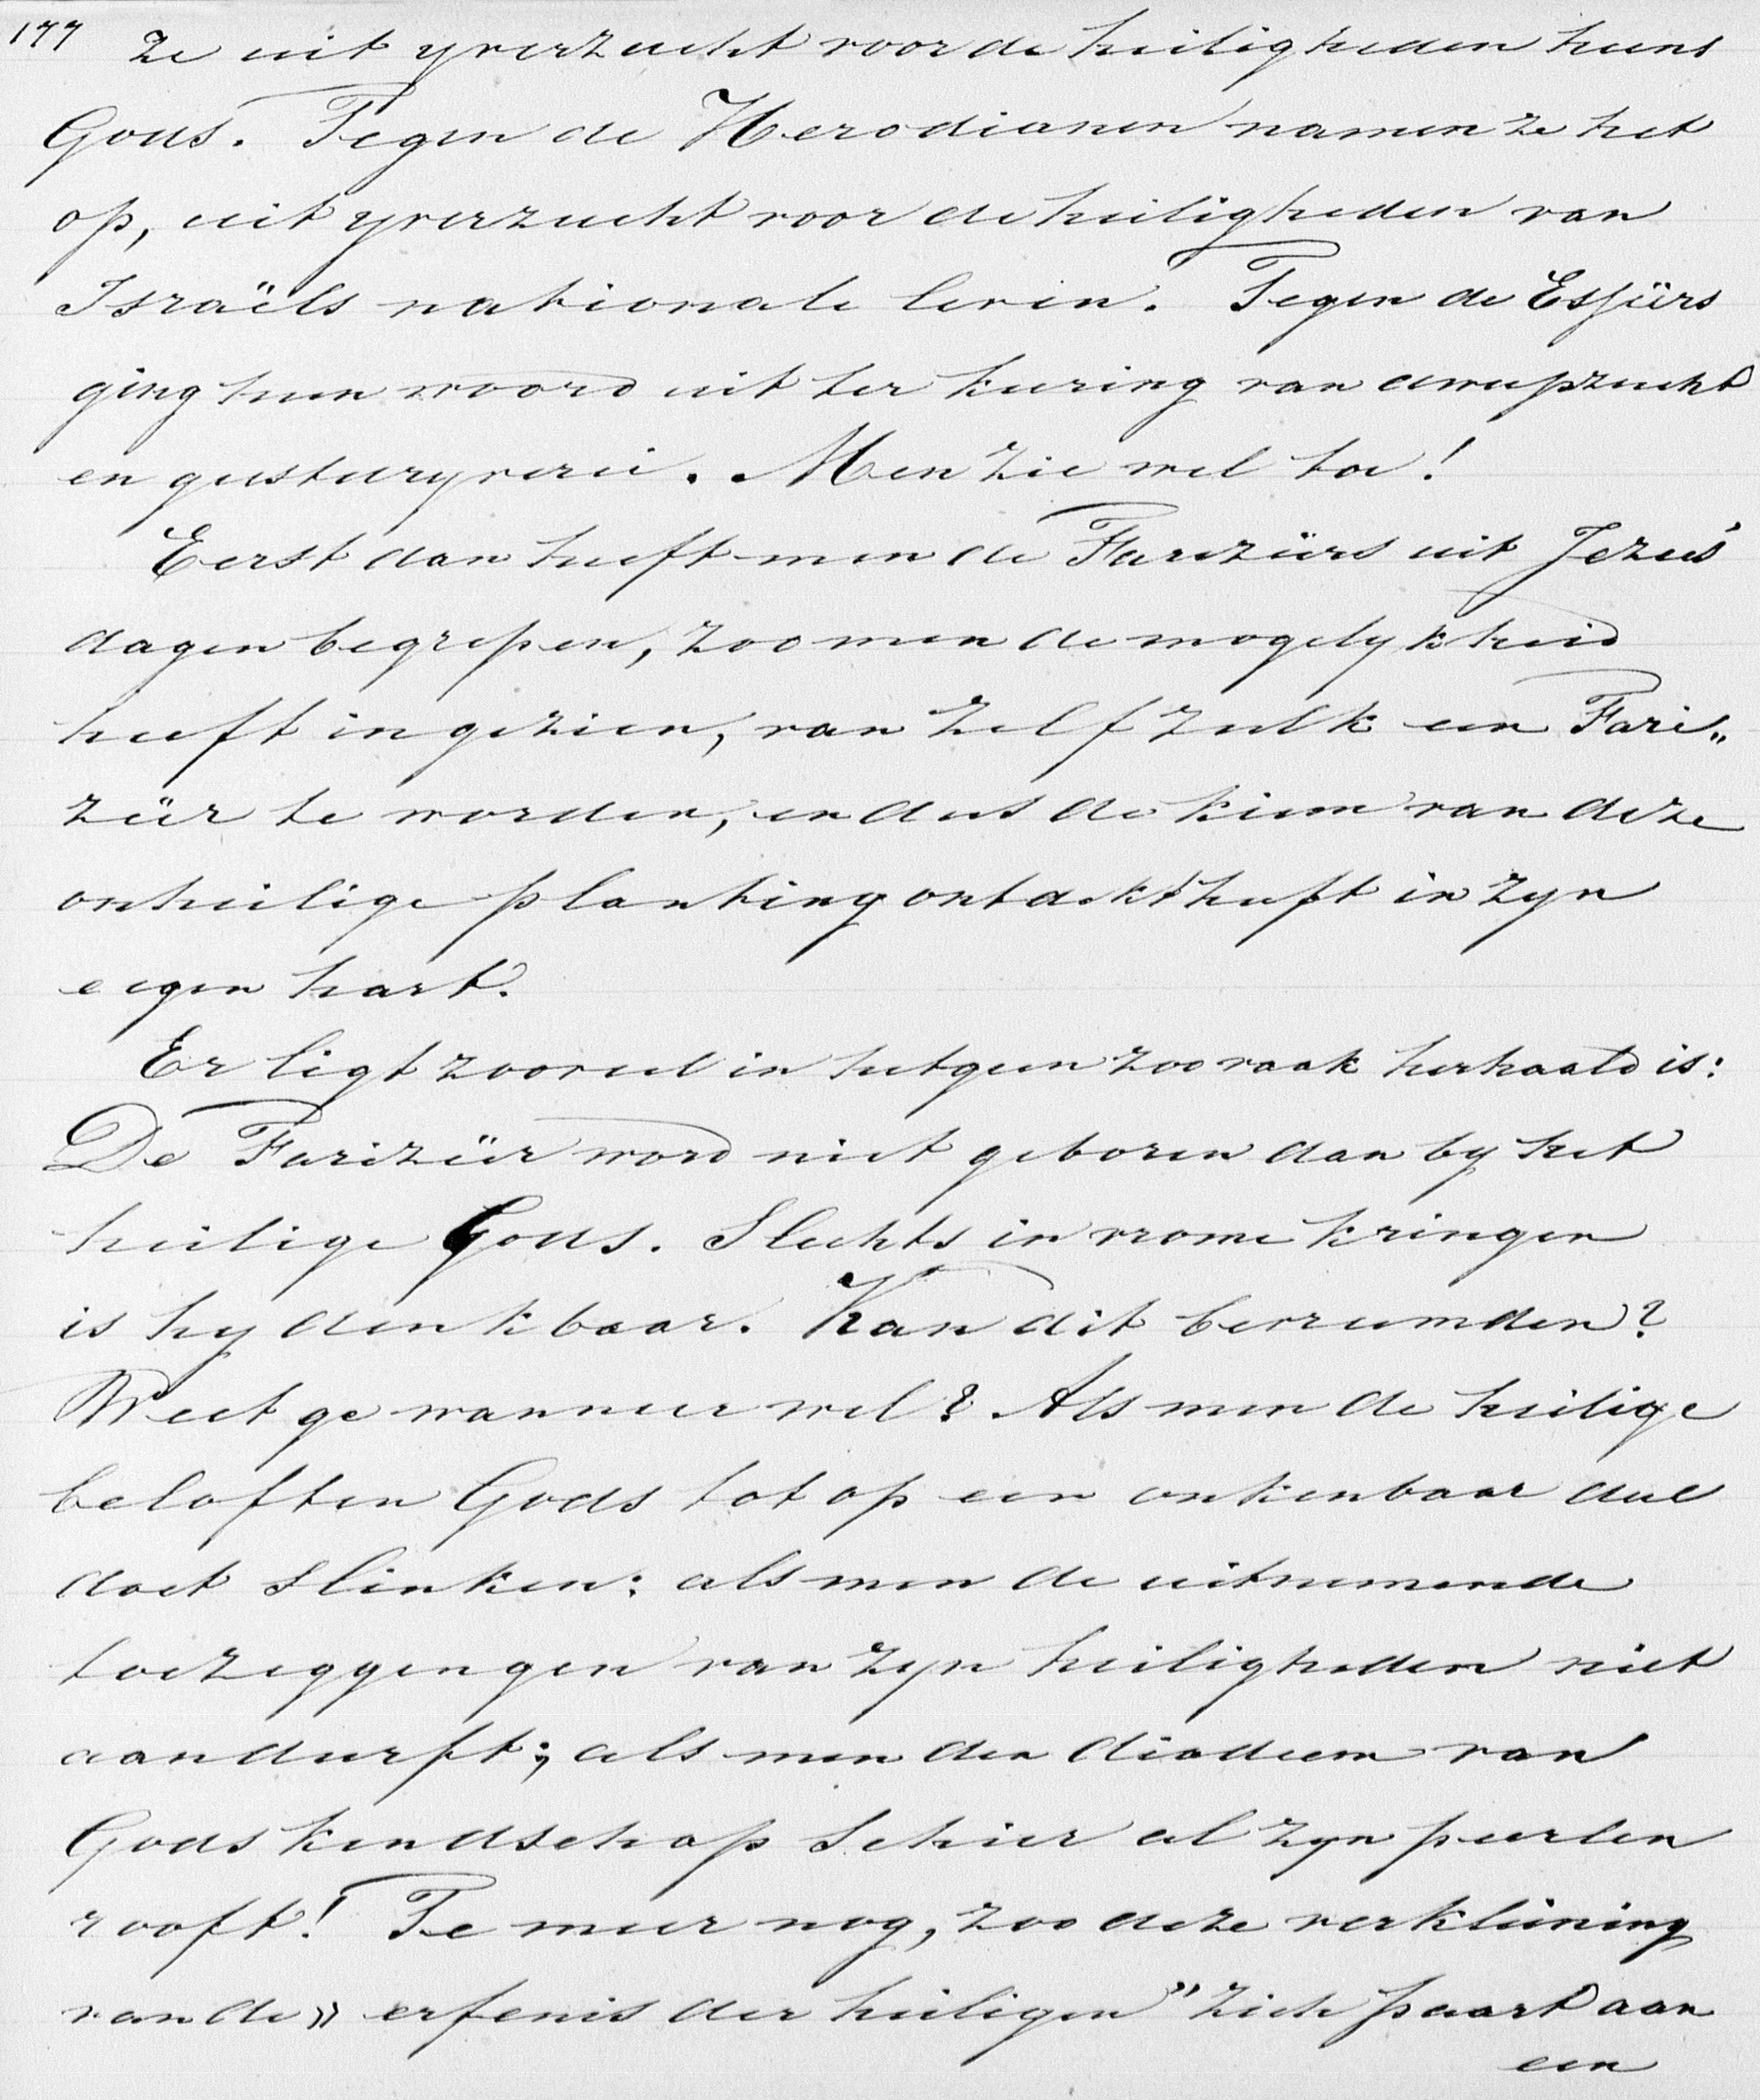 177 ze uit yverzucht voor de heiligheden huns
Gods. Tegen de Herodianen namen ze het
op, uit yverzucht voor de heiligheden van
Israëls nationale leven. Tegen de Esseërs
ging hun woord uit ter keering van dweepzucht
en geestdryverei. Men zie wel toe!
Eerst dan heeft men de Farizeërs uit Jezus'
dagen begrepen, zoo men de mogelykheid
heeft ingezien, van zelf zulk een Fari„
zeër te worden, en dus de kiem van deze
onheilige planting ontdekt heeft in zyn
eigen hart.
Er ligt zooveel in hetgeen zoo vaak herhaald is:
De Farizeër word niet geboren dan by het
heilige Gods. Slechts in vrome kringen
is hy denkbaar. Kan dit bevreemden?
Weet ge wanneer wel? Als men de heilige
beloften Gods tot op een onkenbaar deel
doet slinken: als men de uitnemende
toezeggengen van zyn heiligheden niet
aandurft; als men den diadeem van
Gods kendschap schier al zyn peerlen
rooft! Te meer nog, zoo deze verkleining
van de »erfenis der heiligen” zich paart aan
een